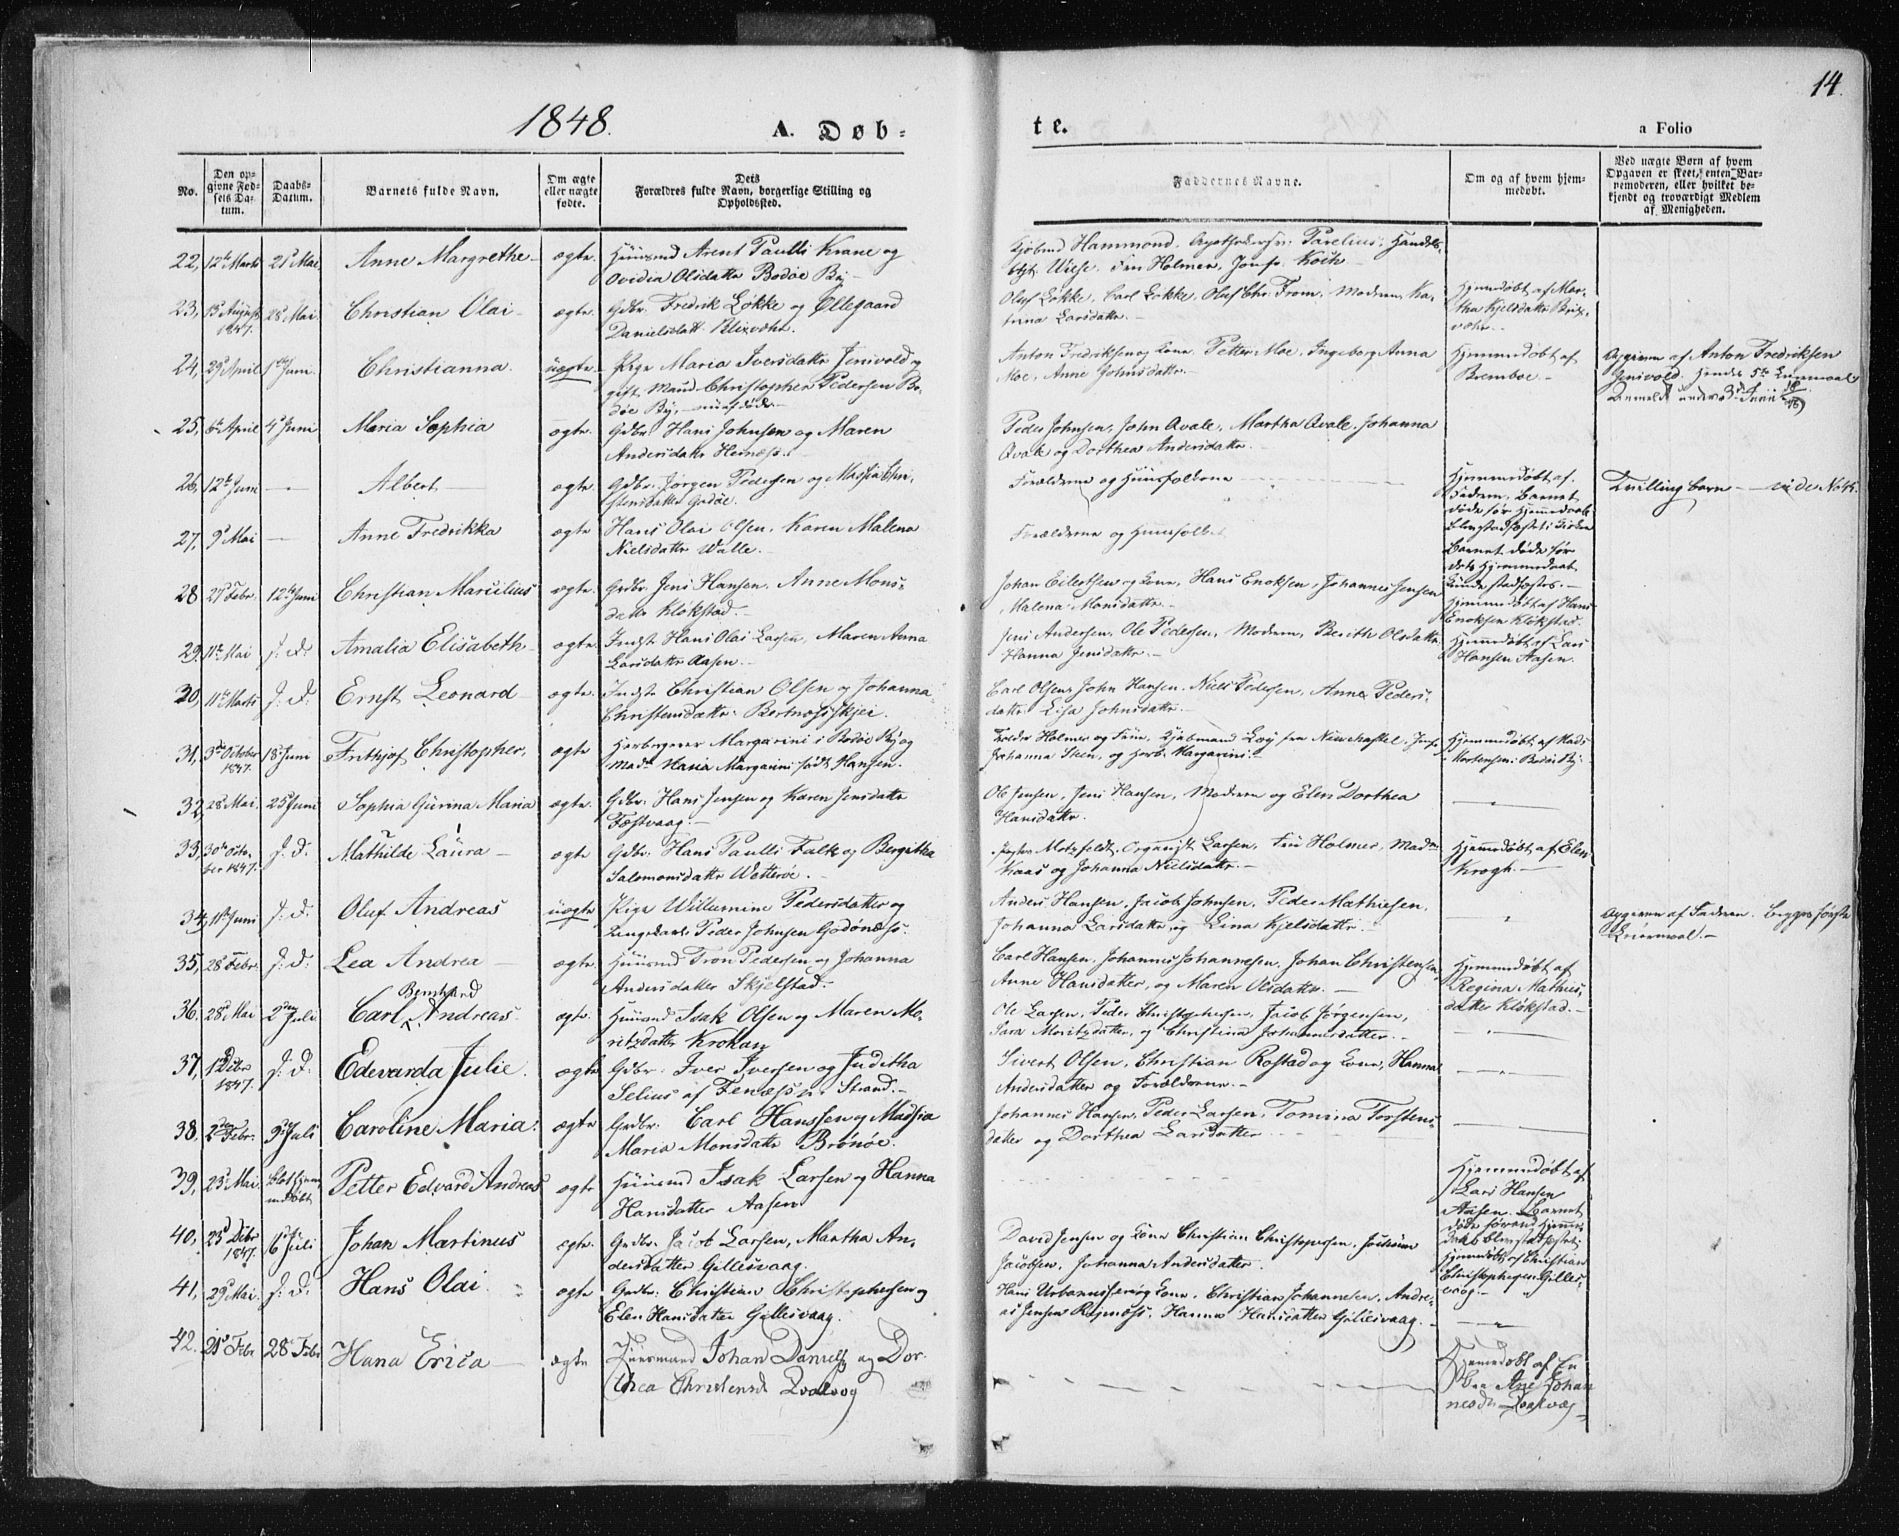 14.
1848.
A. Døb-
te.
a Folio
No.
Den op-
givne Fød-
sels Da-
tum.
Daabs-
Datum.
Barnets fulde Navn.
Om ægte
eller uægte
fødte.
Dets
Forældres fulde Navn, borgerlige Stilling og
Opholdssted.
Faddernes Navne.
Om og af hvem hjem-
medøbt.
Ved uægte Børn af hvem
Opgaven er skeet, enten Bar-
nemoderen, eller hvilket be-
kjendt og troværdigt Medlem
af Menigheden.
22, 12te Marts 21 Mai Anne Margrethe ægte. Huusmd Arent Paulli Krane og
Ovidia Olsdattr Bodøe By
Kjøbmd Hammond. Parelius. Handels-
Wiese. Fru Holmer, Jomfr. Koch
23, 13 August 1847. 28 Mai Christian Olai ægte. Gdbr. Fredrik Løkke og Ellegaard
Danielsdatt. Blixvær.
Oluf Løkke, Carl Løkke, Oluf Chr. From. Modren, Ka-
trina Larsdattr.
Hjemmedøbt af Mar-
tha Kjelsdattr Blix-
vær.
24, 29 April 1ste Juni Christianna. uægte Pige Maria Iversdattr Jensvold og
gift Mand Christopher Pedersen Bo-
døe By,
Anton Fredriksen og Kone, Petter Moe, Ingeborg Anna
Moe, Anne Johnsdattr.
Hjemmedøbt af
Bremboe
Opgiven af Anton Fredriksen
Jensvold. Hendes 5te Leiermaal
Anmeldt under 3 Juni
25, 6te April 4 Juni Maria Sophia ægte. Gdbr. Hans Johnsen og Maren
Andersdattr Hernæs.
Peder Johnsen, John Qvale, Martha Qvale, Johanna
Qvale og Dorthea Andersdattr.
26, 12te Juni Albert ægte. Gdbr. Jørgen Pedersen og Massia Chri-
stensdatter Godøe.
Forældrene og Huusfolkene
Hjemmedøbt af
Fadren. Barnet
døde før Hjemmedaab.
Tvillingbarn vide No 45.
27, 9 Mai Anne Fredrikka ægte Hans Olai Olsen, Karen Malena
Nielsdattr Walle.
Forældrene og Huusfolket
Barnet døde før
dets Hjemmedaab
28 27 Febr. 12te Juni Christian Marcilius ægte. Grdbr. Jens Hansen, Anne Mons-
dattr Kløkstad.
Johan Eilertsen og Kone, Hans Enoksen, Johannes Jensen
Malena Monsdattr.
Hjemmedøbt af Hans
Enoksen Kløkstad.
29, 11te Mai s. D. Amalia Elisabeth ægte. Indst. Hans Olai Larsen, Maren Anna
Larsdattr Aasen.
Jens Andersen, Ole Pedersen, Modren, Berith Olsdattr
Hanna Jensdattr.
Hjemmedøbt af Lars
Hansen Aasen.
30, 11te Marts s. D. Ernst Leonard ægte. Indst. Christian Olsen og Johanna
Christensdattr. Bertnæsskjer.
Carl Olsen, John Hansen, Niels Pedersen, Anne Peders-
dattr. Lisa Johnsdattr.
31, 3die October 1847. 18 Juni Frithjof Christopher. ægte Herbergerer Margarini i Bodøe By og
Madm Maria Margarini født Hansen.
Holmer og Frue, Kjøbmand Koy
Johanna Steen, og Herb. Margarini.
Hjemmedøbt af Mads
Mortensen Bodøe By.
32, 28 Mai. 25 Juni Sophia Gurina Maria ægte. Gdbr. Hans Jensen og Karen Jensdattr
Fæstvaag.
Ole Jensen, Jens Hansen, Modren og Elen Dorthea
Hansdattr.
33, 30te Octo-
ber 1847. s. D. Mathilde Laura ægte Gdbr. Hans Paulli Falk og Bergitha
Salomonsdattr Wetterøe.
Motzfeldt, Organist Larsen, Frue Holmer, Madm
Kaas og Johanna Nielsdattr.
Hjemmedøbt af Elen
Krogh.
34, 11te Juni s. D. Oluf Andreas uægte Pige Willumine Pedersdatter og
Ungekarl Peder Johnsen Godønæs.
Anders Hansen, Jacob Johnsen, Peder Mathiesen,
Johanna Larsdattr og Lina Kjelsdattr.
Opgiven af Fadren. Begges første
Leiermaal.
35, 28 Febr. s. D. Lea Andrea ægte. Huusmd Tron Pedersen og Johanna
Andersdatter Skjelstad.
Carl Hansen, Johannes Johannesen, Johan Christensen
Anne Hansdatter, og Maren Olsdattr.
Hjemmedøbt af
Regina Mathis-
datter Kløkstad.
36. 28 Mai 2den Juli Carl Bernhard Andreas ægte. Huusmd Isak Olsen og Maren Mo-
ritzdatter Krokan
Ole Larsen, Peder Christophersen, Jacob Jørgensen,
Sara Moritzdatter, og Christina Johannesdatter.
37, 1 Debr 1847. s. D. Edevarda Julie. ægte Gdbr. Iver Iversen og Juditha
Selius af Fenæs Strand.
Sivert Olsen, Christian Rostad og Kone, Hanna
Andersdatter og Forældrene.
38. 2den Febr. 9 Juli Caroline Maria. ægte Grdbr. Carl Hanssen og Madsia
Maria Monsdattr Brønøe.
Johannes Hansen, Peder Larsen, Tomina Torstens-
datter og Dorthea Larsdatter
39, 23 Mai. blot hjem-
medøbt Petter Edvard Andreas ægte Huusmd Isak Larsen og Hanna
Hansdatter Aasen
Hjemmedøbt af
Lars Hansen
Aasen. Barnet
40, 23 Debr 1847. 16 Juli Johan Martinus ægte. Grdbr. Jacob Larsen, Martha An-
dersdatter Gillesvaag.
David Jensen og Kone Christian Christophersen, Joachim
Jacobsen, Johanna Andersdatter.
Hjemmedøbt af Christian
Christophersen Gilles-
vaag.
41, 29 Mai. s. D. Hans Olai ægte Grdbr. Christian Christophersen og
Elen Hansdatter Gillesvaag.
Hans Urbanussen og Kone, Christian Johannesen, Andre-
as Jensen Røsnæss, Hanna Hansdatter Gillesvaag.
42. 21 Febr 28 Febr Hana Erica ægte Huusmand Johan Daniels og Dor-
thea Christensd Qvalvog
Hjemedøbt af En-
ken Ane Johan-
nesdt Qvalvog